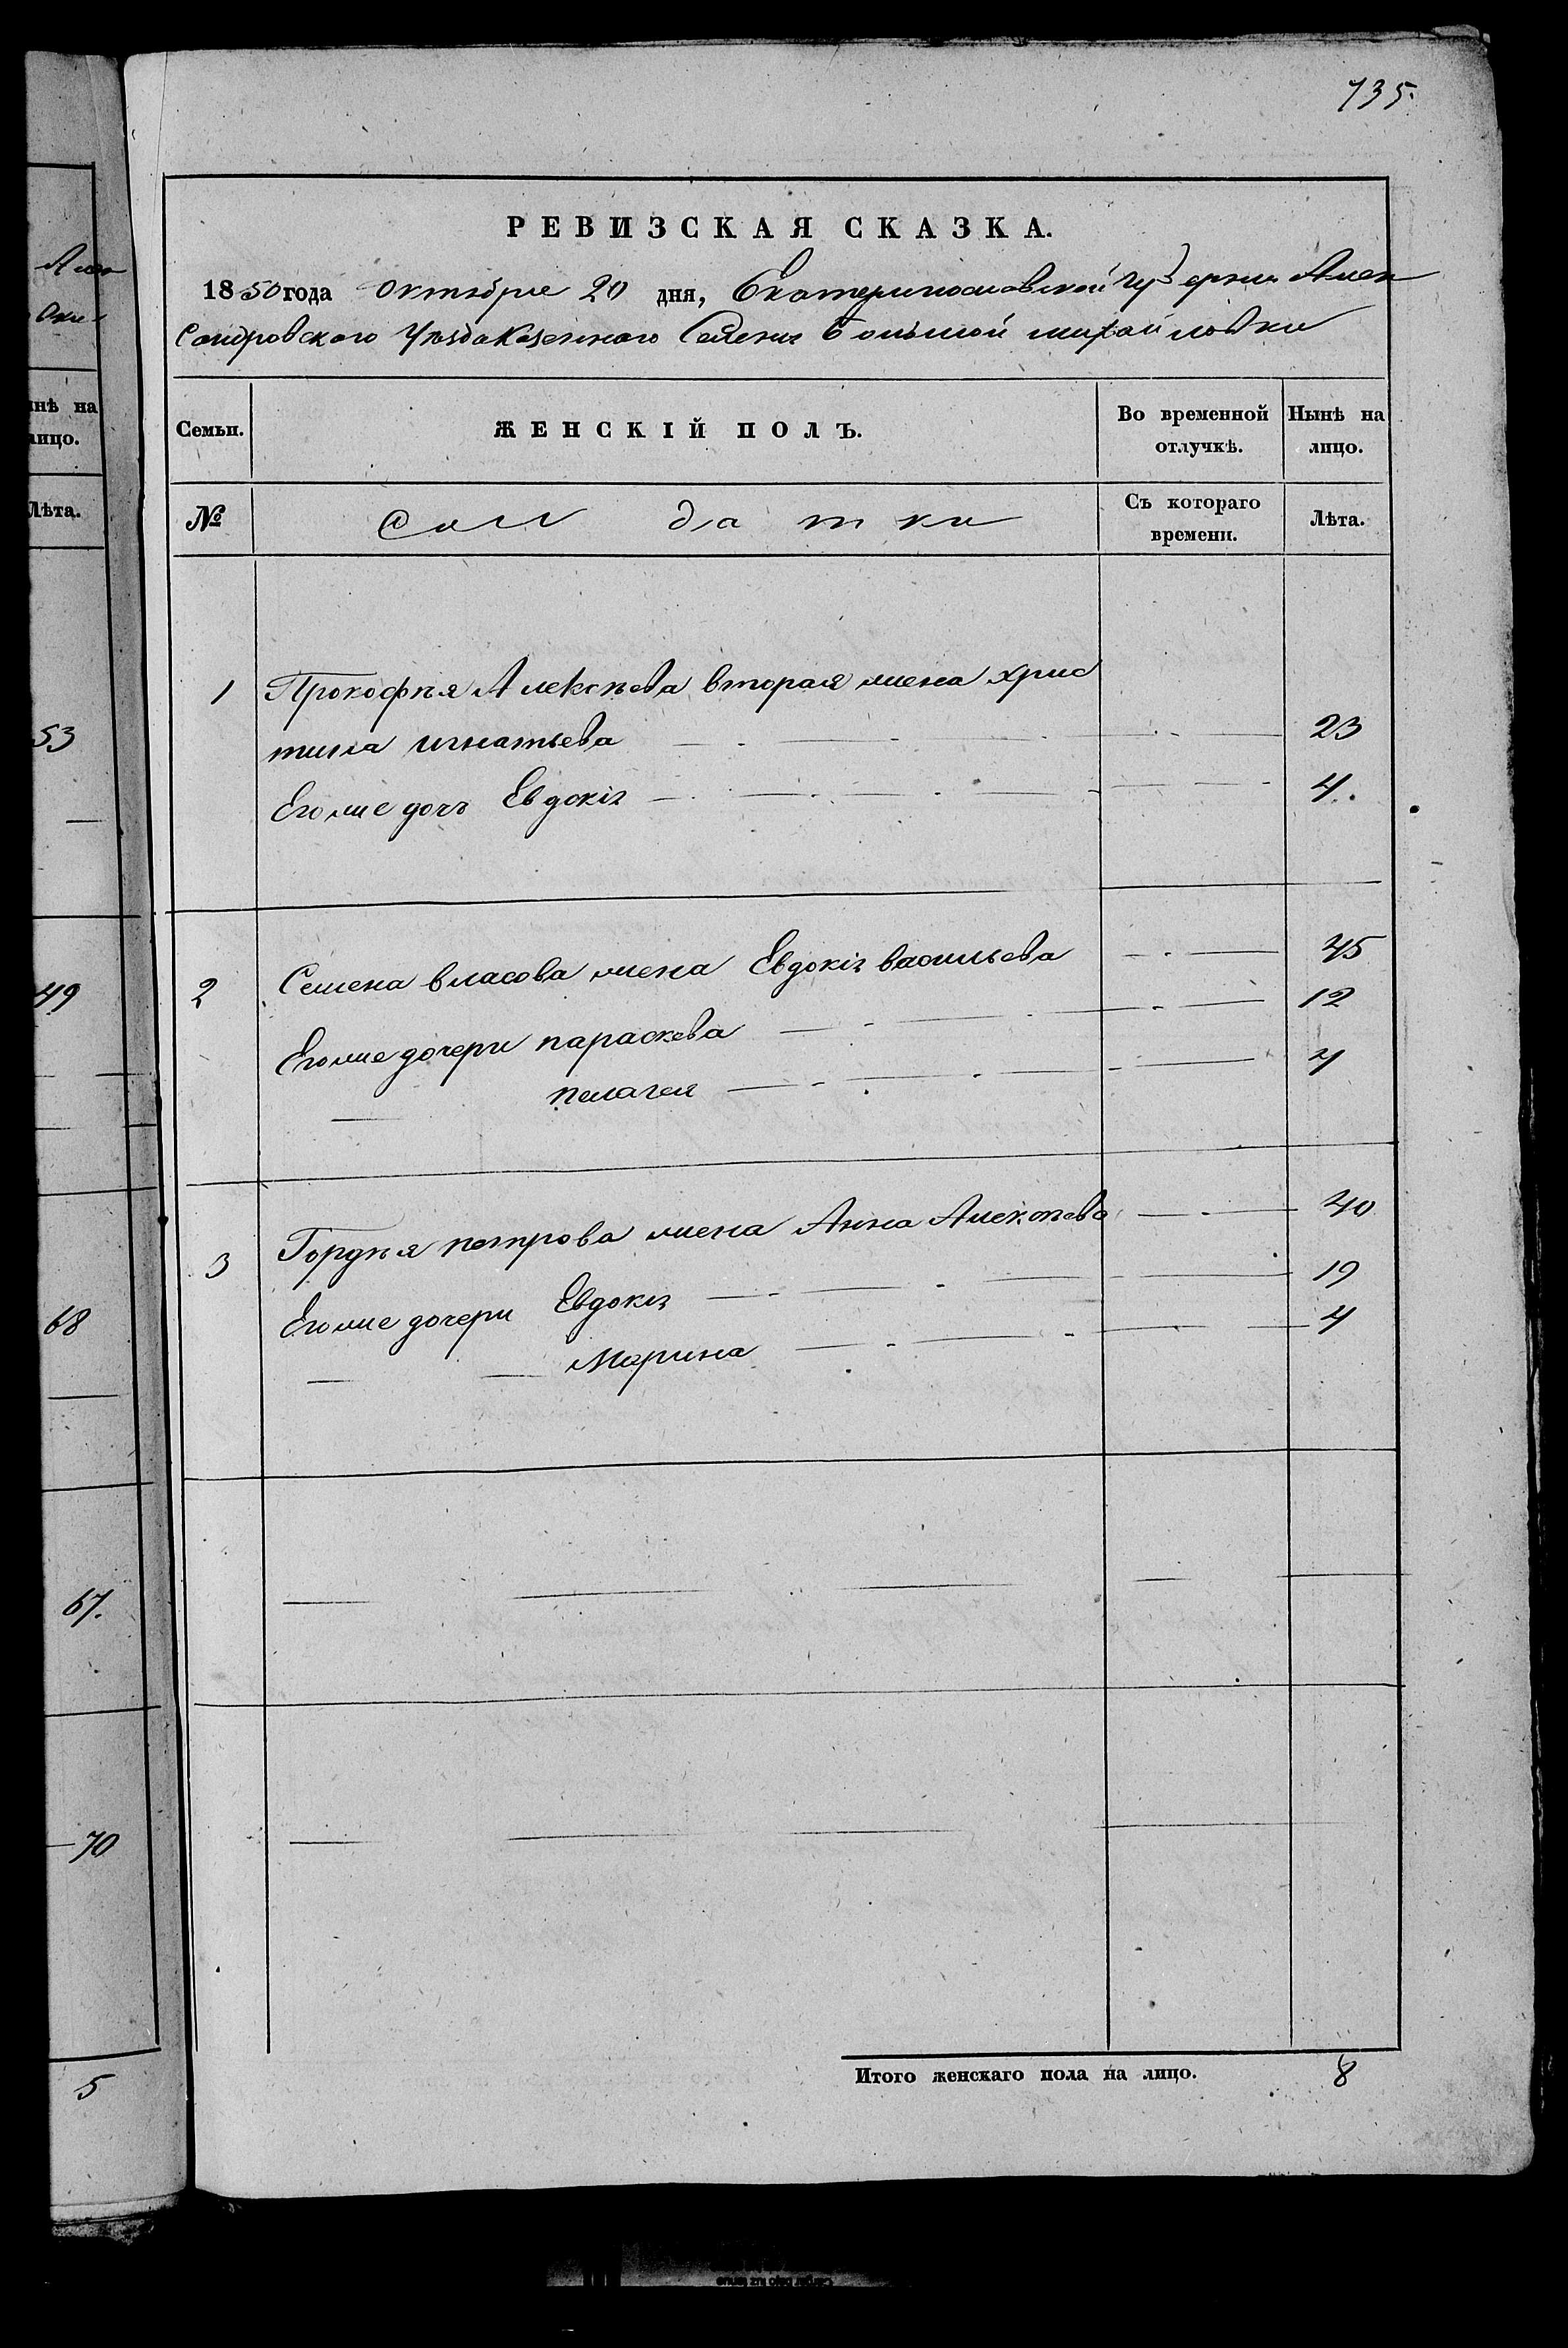 735.
РЕВИЗСКАЯ СКАЗКА.
1850 года Октября 20 дня, Екатеринославской губернии Алек
сандровского Уѣзда Казенного Селения Большой михайловки
Семьи. ЖЕНСКІЙ ПОЛЪ. Во временной отлучкѣ. Нынѣ на лицо.
№ Сол да т ки Съ котораго времени. Лѣта.
1 Прокофія Алексѣева вторая жена хрис
тина игнатьева 23
Его же дочь Евдокія 4.
2 Семена власова жена Евдокія васильева 45
Его же дочери параскева 12
пелагея 4
3 Гордѣя петрова жена Анна Алексѣева 40
Его же дочери Евдокія 19
Марина 4
Итого женскаго пола на лицо. 8
Алек
нѣ на
лицо.
Лѣта.
53
49
68
67.
70
5